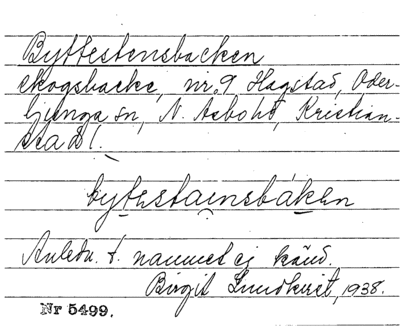 Byttestensbacken
skogsbacke, nr. 9 Hagstad, Oder-
ljunga sn, N. Åsbo hd, Kristian-
stad l.
bytestainsbáken
Anledn. t. namnet ej känd.
Birgit Lundkvist, 1938.
Nr 5499.